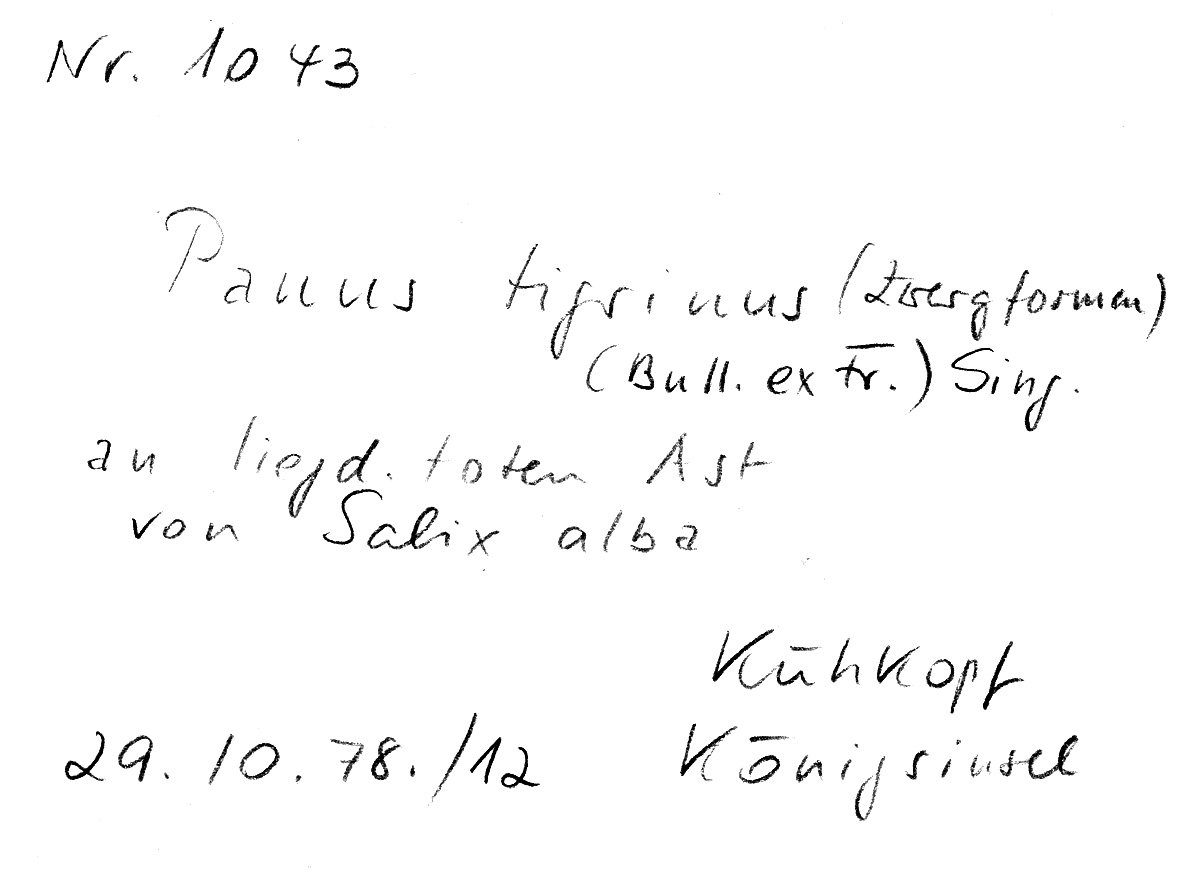 Nr. 1043
Panus tigrinus (Zwergformen)
(Bull. ex Fr.) Sing.
an liegd. toten Ast
von Salix alba
Kühkopf
29. 10. 78. /12 Königsinsel